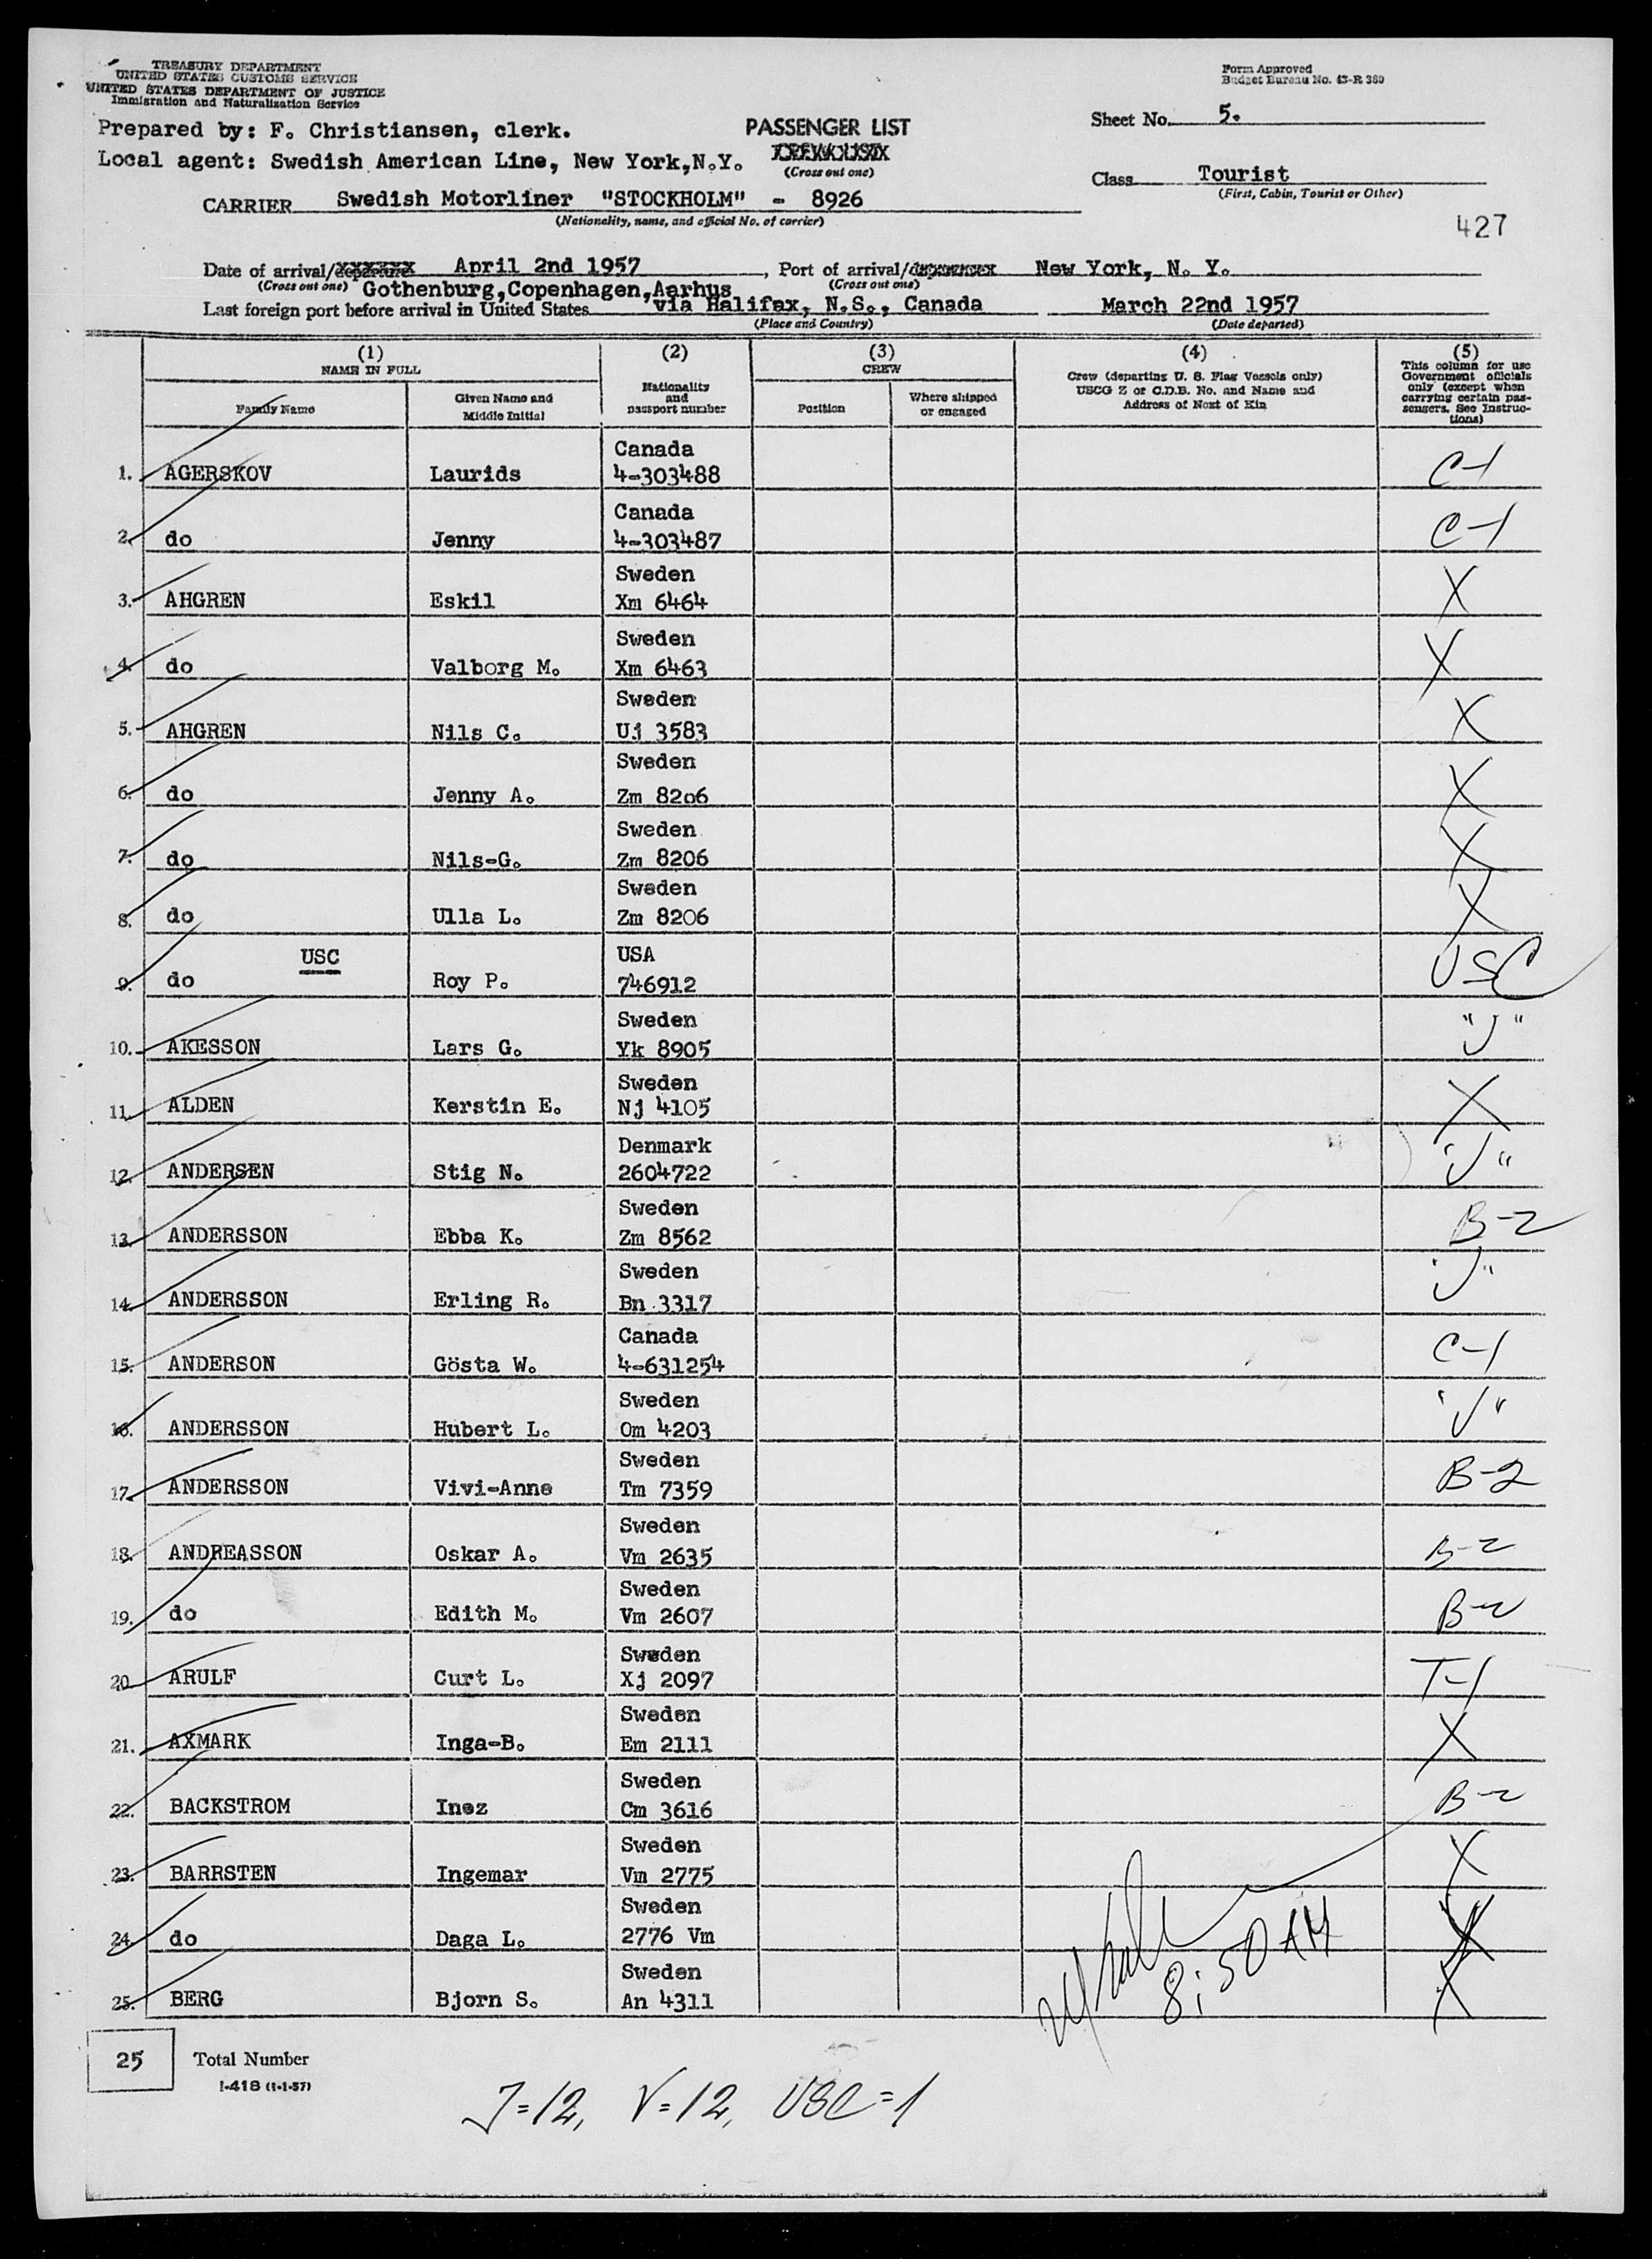 TREASURY DEPARTMENT
UNITED STATES CUSTOMS SERVICE
UNITED STATES DEPARTMENT OF JUSTICE
Immigration and Naturalization Service
Form Approved
Budget Bureau No. 43-R 380
Prepared by: F. Christiansen, clerk.
PASSENGER LIST
Sheet No. 5.
Local agent: Swedish American Line, New York,N.Y.
(Cross out one)
Class Tourist
(First, Cabin, Tourist or Other)
CARRIER Swedish Motorliner "STOCKHOLM" - 8926
(Nationality, name, and official No. of carrier)
427
Date of arrival/departure April 2nd 1957, Port of arrival/ New York, N. Y.
(Cross out one) Gothenburg,Copenhagen,Aarhus (Cross out one)
Last foreign port before arrival in United States via Halifax, N.S., Canada March 22nd 1957
(Place and Country) (Date departed)
(1) NAME IN FULL
Family Name
Given Name and Middle Initial
(2) Nationality and passport number
(3) CREW
Position
Where shipped or engaged
(4) Crew (departing U. S. Flag Vessels only) USCG Z or C.D.B. No. and Name and Address of Next of Kin
(5) This column for use Government officials only (except when carrying certain passengers. See Instructions)
1. AGERSKOV Laurids Canada 4-303488 C-1
2. do Jenny Canada 4-303487 C-1
3. AHGREN Eskil Sweden Xm 6464 X
4. do Valborg M. Sweden Xm 6463 X
5. AHGREN Nils C. Sweden Uj 3583 X
6. do Jenny A. Sweden Zm 8206 X
7. do Nils-G. Sweden Zm 8206 X
8. do Ulla L. Sweden Zm 8206 X
9. do USC Roy P. USA 746912 USC
10. AKESSON Lars G. Sweden Yk 8905 "J"
11. ALDEN Kerstin E. Sweden Nj 4105 X
12. ANDERSEN Stig N. Denmark 2604722 "J"
13. ANDERSSON Ebba K. Sweden Zm 8562 B-2
14. ANDERSSON Erling R. Sweden Bn 3317 "J"
15. ANDERSON Gösta W. Canada 4-631254 C-1
16. ANDERSSON Hubert L. Sweden Om 4203 "J"
17. ANDERSSON Vivi-Anne Sweden Tm 7359 B-2
18. ANDREASSON Oskar A. Sweden Vm 2635 B-2
19. do Edith M. Sweden Vm 2607 B-2
20. ARULF Curt L. Sweden Xj 2097 T-1
21. AXMARK Inga-B. Sweden Em 2111 X
22. BACKSTROM Inez Sweden Cm 3616 B-2
23. BARRSTEN Ingemar Sweden Vm 2775 X
24. do Daga L. Sweden 2776 Vm X
25. BERG Bjorn S. Sweden An 4311 X
8:50 AM
25 Total Number
I-418 (1-1-57)
J=12, V=12, USC=1